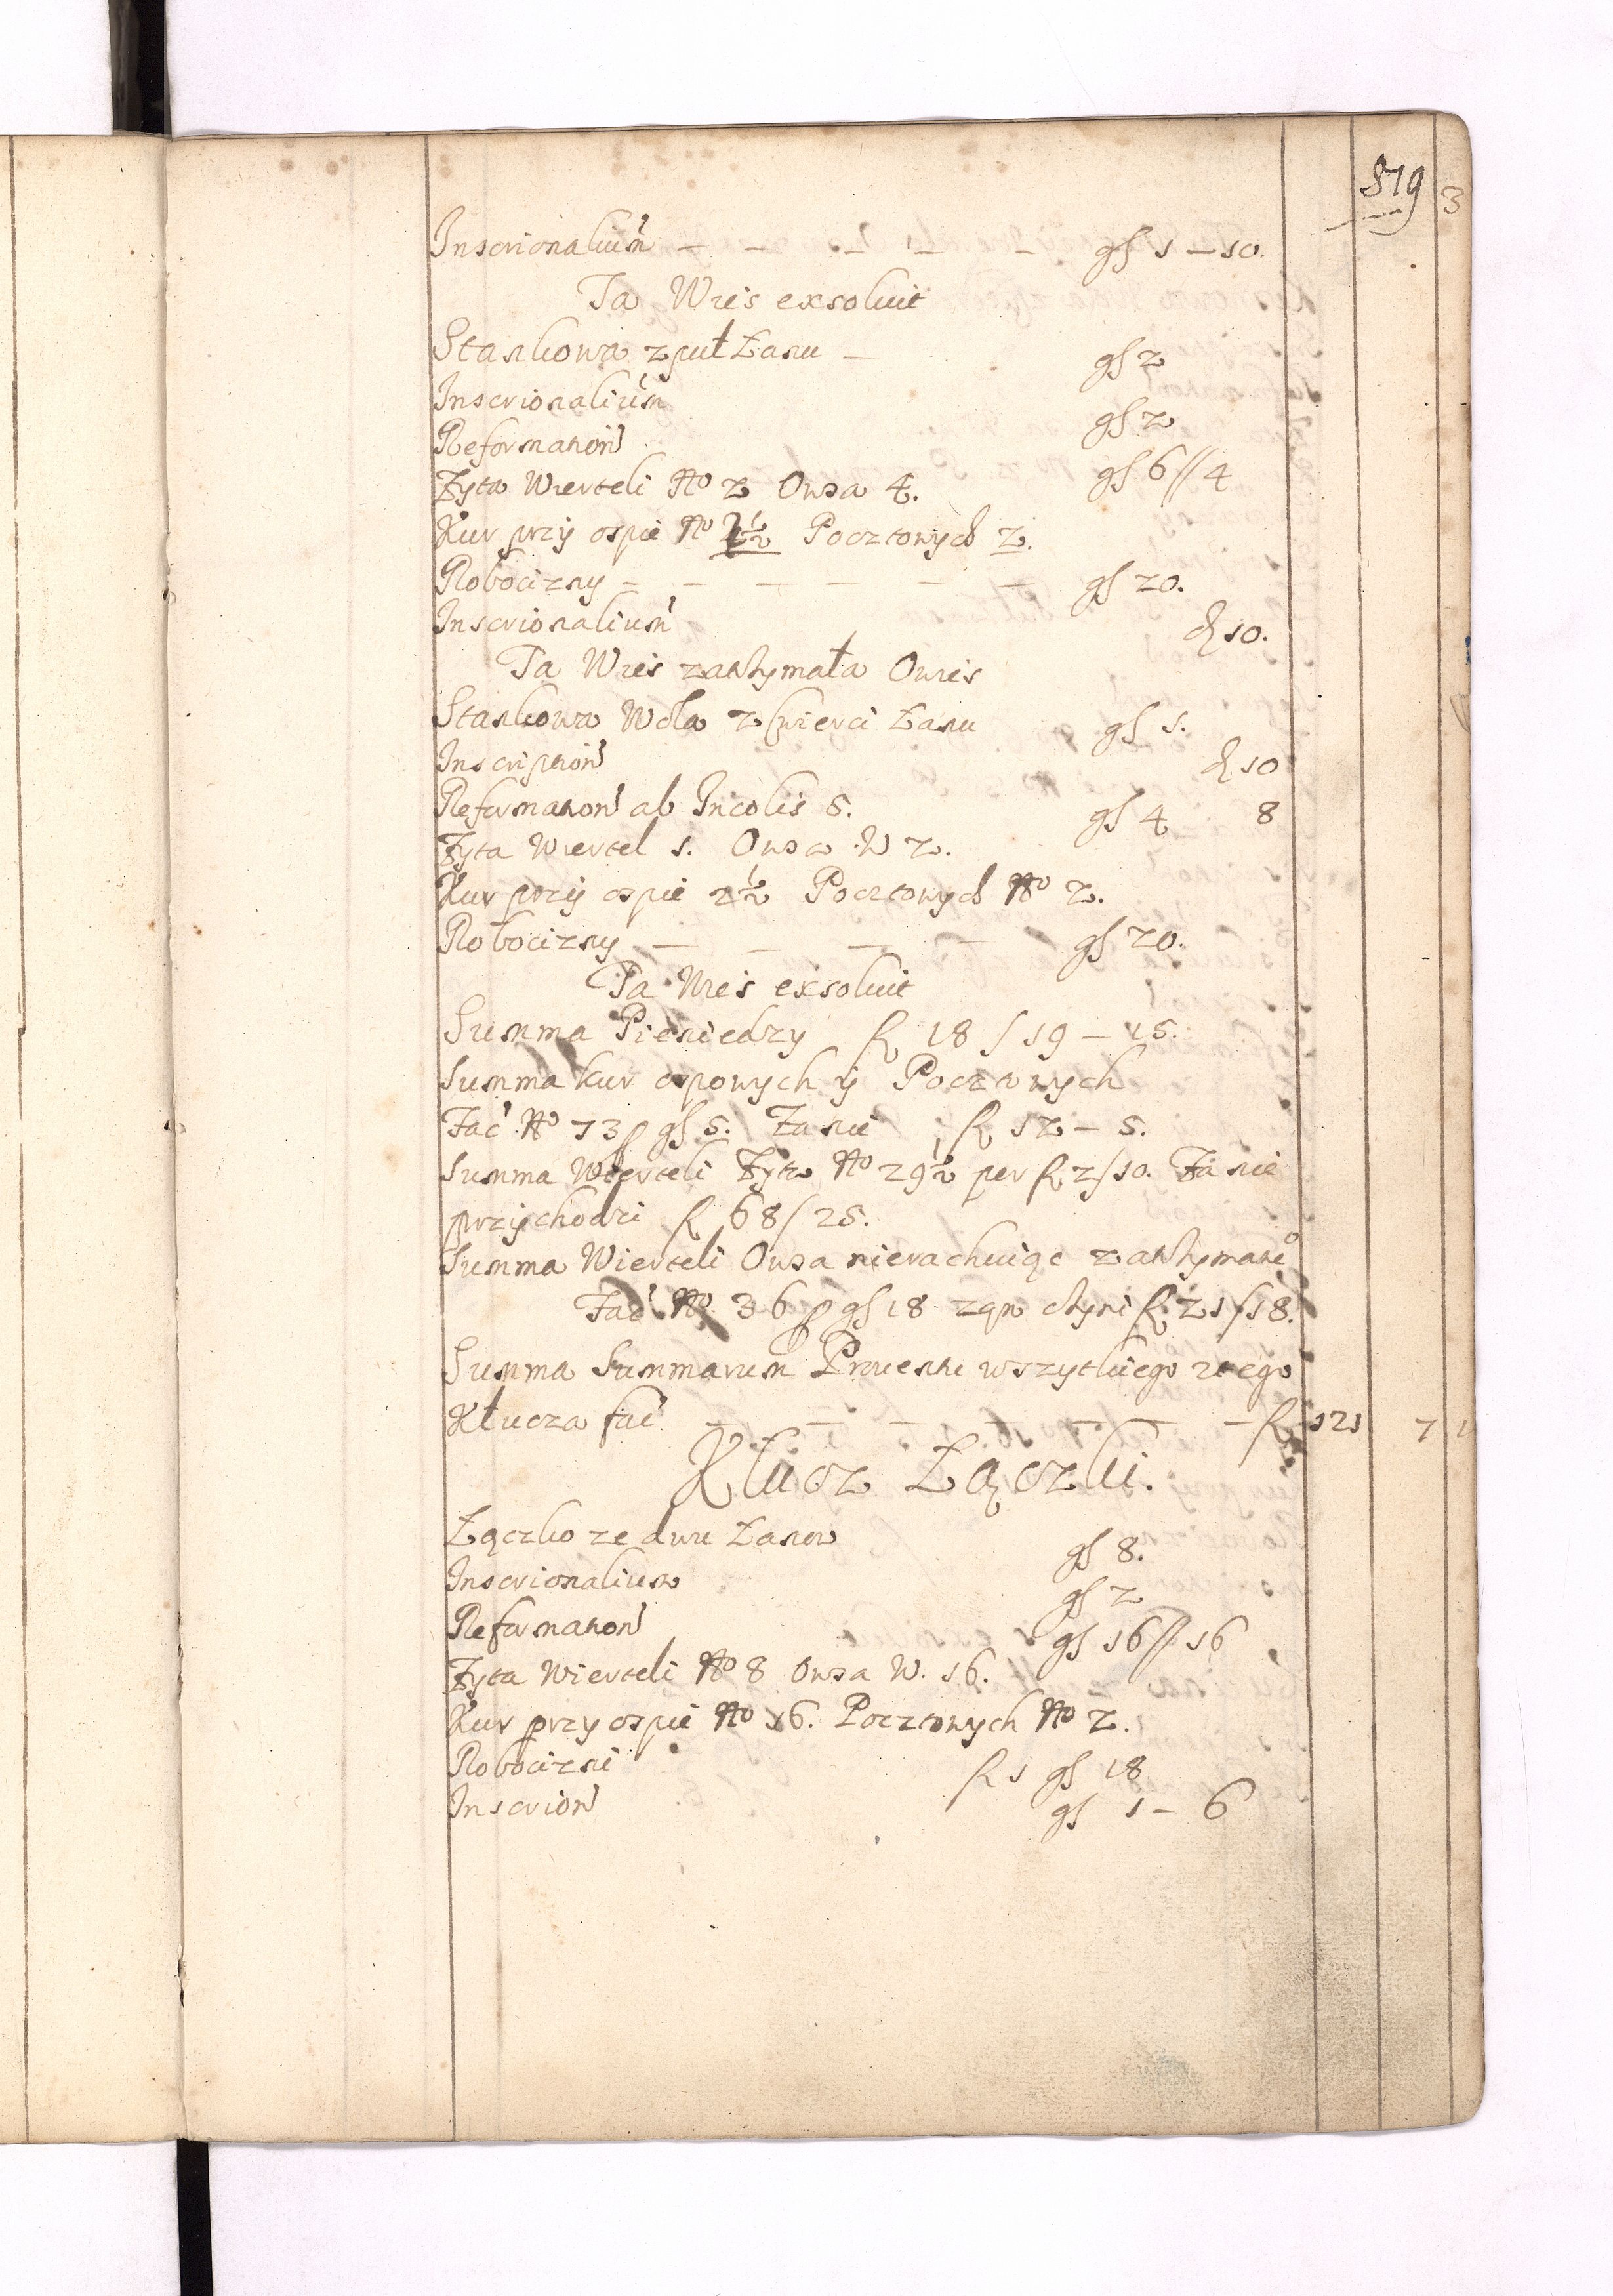 519 3
Inscrionalium — — — — — gſ 1 — 10.
Ta Wies exsoluit
Stankowa z puł Łanu — gſ 2
Inscrionalium gſ 2
Reformation gſ 6 // 4
Żyta Wierteli No 2 Owsa 4.
Kur przy ospie No 2½ Pocztowych 2.
Robocizny — — — — — — gſ 20.
Inscrionalium ₰ 10.
Ta Wies zatrzymała Owies
Stankowa Wola z Cwierci Łanu gſ 1.
Inscription ₰ 10
Reformation ab Incolis 5. gſ 4 8
Żyta Wiertel 1. Owsa W 2.
Kur przy ospie 2½ Pocztowych No 2.
Robocizny — — — — gſ 20.
Ta Wies exsoluit
Summa Pieniedzy fl 18 / 19 — 15.
Summa kur ospowych ÿ Pocztowych
Fac No 73 p gſ 5. Za nie fl 12 — 5.
Summa Wierteli Żyta No 29½ per fl 2/10. Za nie
przychodzi fl 68 / 25.
Summa Wierteli Owsa nierachuiąc zatrzymane°
Fac No 36 p gſ 18 zqo czyni fl 21/18.
Summa Summarum Prouentu wszytkiego z tego
Klucza fac — — — — — — fl 121 7
Klucz Łączki.
Łączko ze dwu Łanow gſ 8.
Inscrionalium gſ 2
Reformation gſ 16 // 16
Żyta Wierteli No 8 Owsa W. 16.
Kur przy ospie No 16. Pocztowych No 2.
Robocizni fl 1 gſ 18
Inscrion gſ 1 — 6